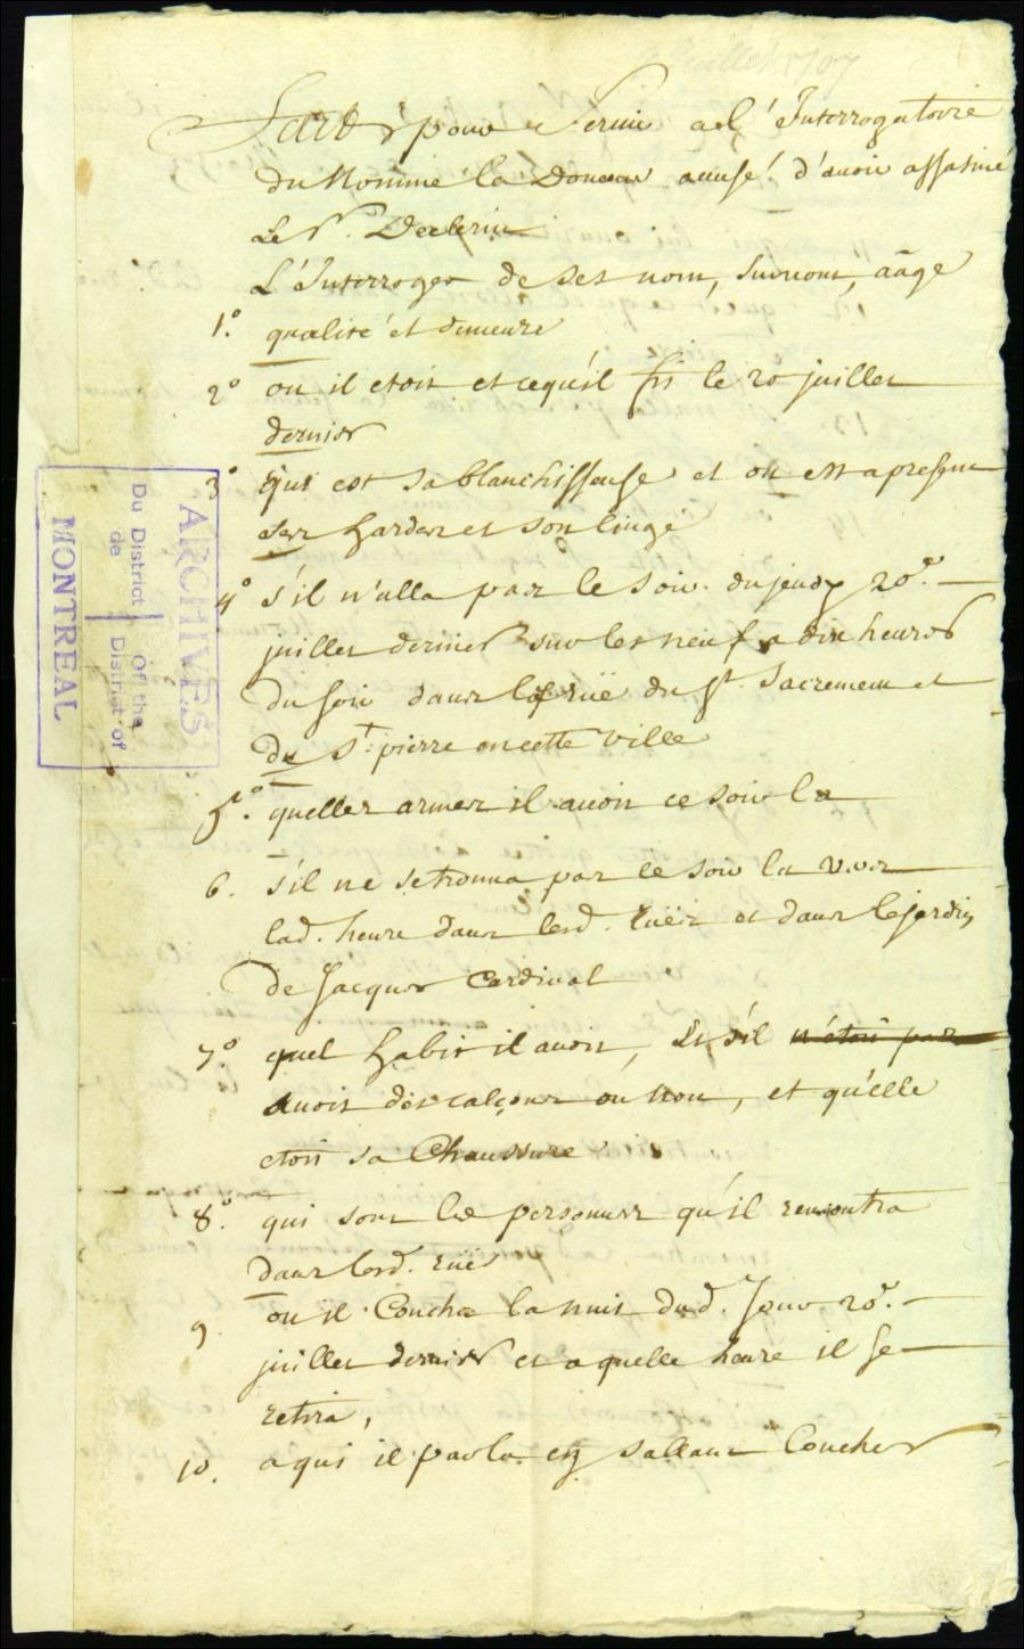 Juillet 1707
Faits pour servir a l'Interrogatoire
du Nommé la Douceur accusé d'avoir assasiné
Le Sr. Declerin
L'Interroger de ses nom, surnom, aâge
1.º qualité et demeure
2º ou il etoit et cequ'il fit le 20 juillet
dernier
3º qui est sa blanchisseuse et ou est apresent
ses hardes et son linge
4º s'il n'alla pas le soir du jeudy 20e.
juillet dernier sur les neuf a dix heures
du soir dans la rüe du St. Sacrement et
de St. pierre en cette ville
5º. quelles armes il avoit ce soir la
6. s'il ne se trouva pas ce soir la vers
lad. heure dans lesd. rües et dans le jardin
de Jacques Cardinal
7º. quel habit il avoit, Et s'il n'étoit pas
avoit des calçons ou non, et qu'elle
etoit sa Chaussure
8º. qui sont les personnes qu'il rencontra
dans lesd. rües
9. ou il Coucha la nuit dud. Jour 20e.
juillet dernier et a quelle heure il se
retira,
10. a qui il parla en sallant Coucher
ARCHIVES
Du District | Of the
de | District of
MONTREAL